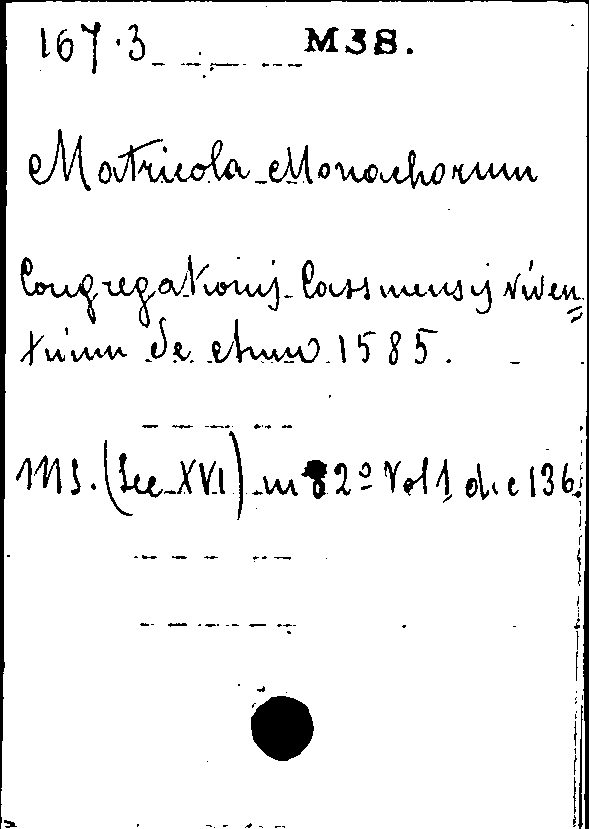 167.3 MSS.
Matricola Monachorum
Congregationis Cassinensis viven=
tium de Anno 1585.
MS. (Sec XVI) in 32º Vol 1 di c 136.